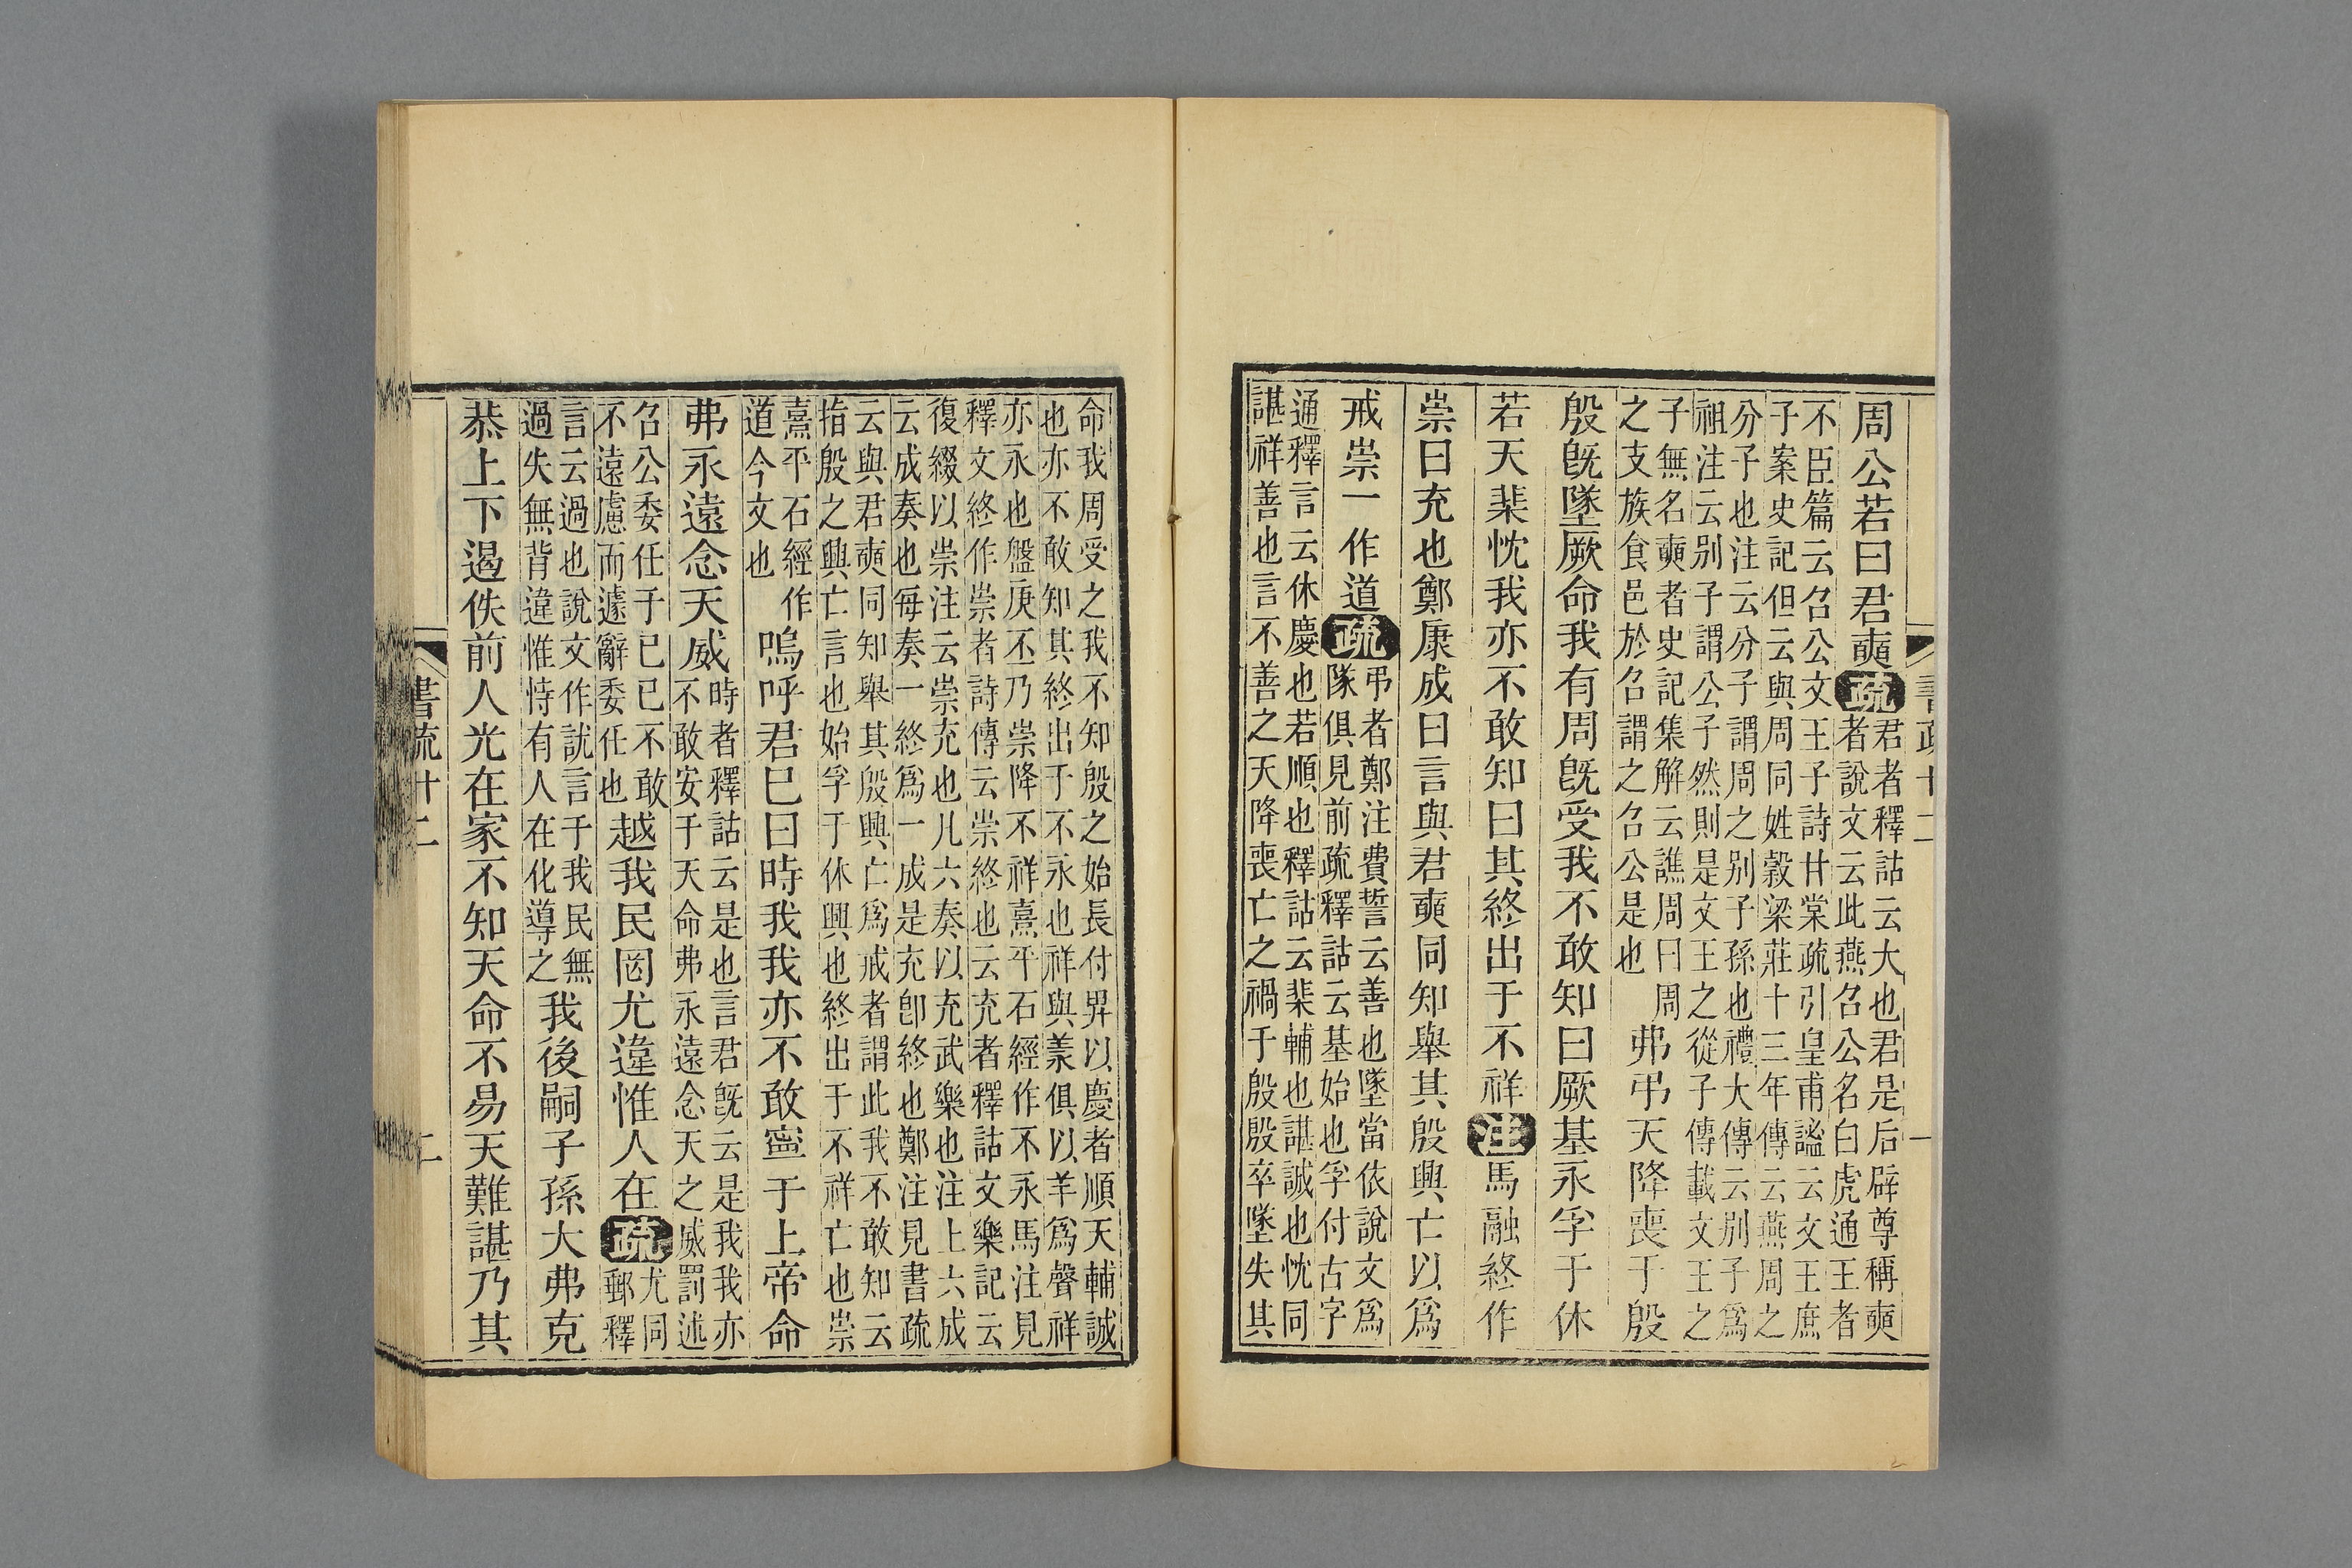 書疏廿二 一
周公若曰君奭疏
君者釋詁云大也君是后辟尊稱奭
者說文云此燕召公名白虎通王者
不臣篇云召公文王子詩甘棠疏引皇甫謐云文王庶
子案史記但云與周同姓穀梁莊十三年傳云燕周之
分子也注云分子謂周之别子孫也禮大傳云别子爲
祖注云别子謂公子然則是文王之從子傳載文王之
子無名奭者史記集解云譙周曰周
之支族食邑於召謂之召公是也
弗弔天降喪于殷
殷旣墜厥命我有周旣受我不敢知曰厥基永孚于休
若天棐忱我亦不敢知曰其終出于不祥注馬融終作
崇曰充也鄭康成曰言與君奭同知舉其殷興亡以爲
戒崇一作道疏
弔者鄭注費誓云善也墜當依說文爲
隊俱見前疏釋詁云基始也孚付古字
通釋言云休慶也若順也釋詁云棐輔也諶誠也忱同
諶祥善也言不善之天降喪亡之禍于殷殷卒墜失其
命我周受之我不知殷之始長付畀以慶者順天輔誠
也亦不敢知其終出于不永也祥與羕俱以羊爲聲祥
亦永也盤庚丕乃崇降不祥熹平石經作不永馬注見
釋文終作崇者詩傳云崇終也云充者釋詁文樂記云
復綴以崇注云崇充也凡六奏以充武樂也注上六成
云成奏也每奏一終爲一成是充卽終也鄭注見書疏
云與君奭同知舉其殷興亡爲戒者謂此我不敢知云
指殷之興亡言也始孚于休興也終出于不祥亡也崇
熹平石經作
道今文也
嗚呼君巳曰時我我亦不敢寧于上帝命
弗永遠念天威
時者釋詁云是也言君旣云是我我亦
不敢安于天命弗永遠念天之威罰述
召公委任于已已不敢
不遠慮而遽辭委任也
越我民罔尤違惟人在疏
尤同
郵釋
言云過也說文作訧言于我民無
過失無背違惟恃有人在化導之
我後嗣子孫大弗克
恭上下遏佚前人光在家不知天命不易天難諶乃其
書疏廿二 二